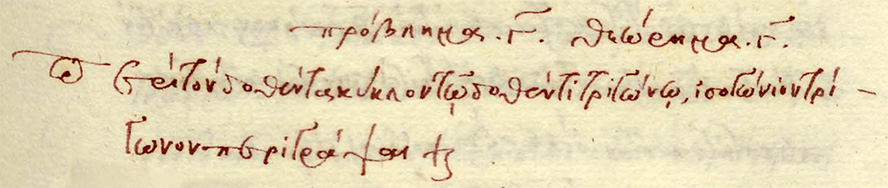 πρόβλημα. γ̅. θεώρημα. γ̅.
Περὶ τὸν δοθέντα κύκλον τῷ δοθέντι τριγώνῳ, ἰσογώνιον τρί-
γωνον περιγράψαι